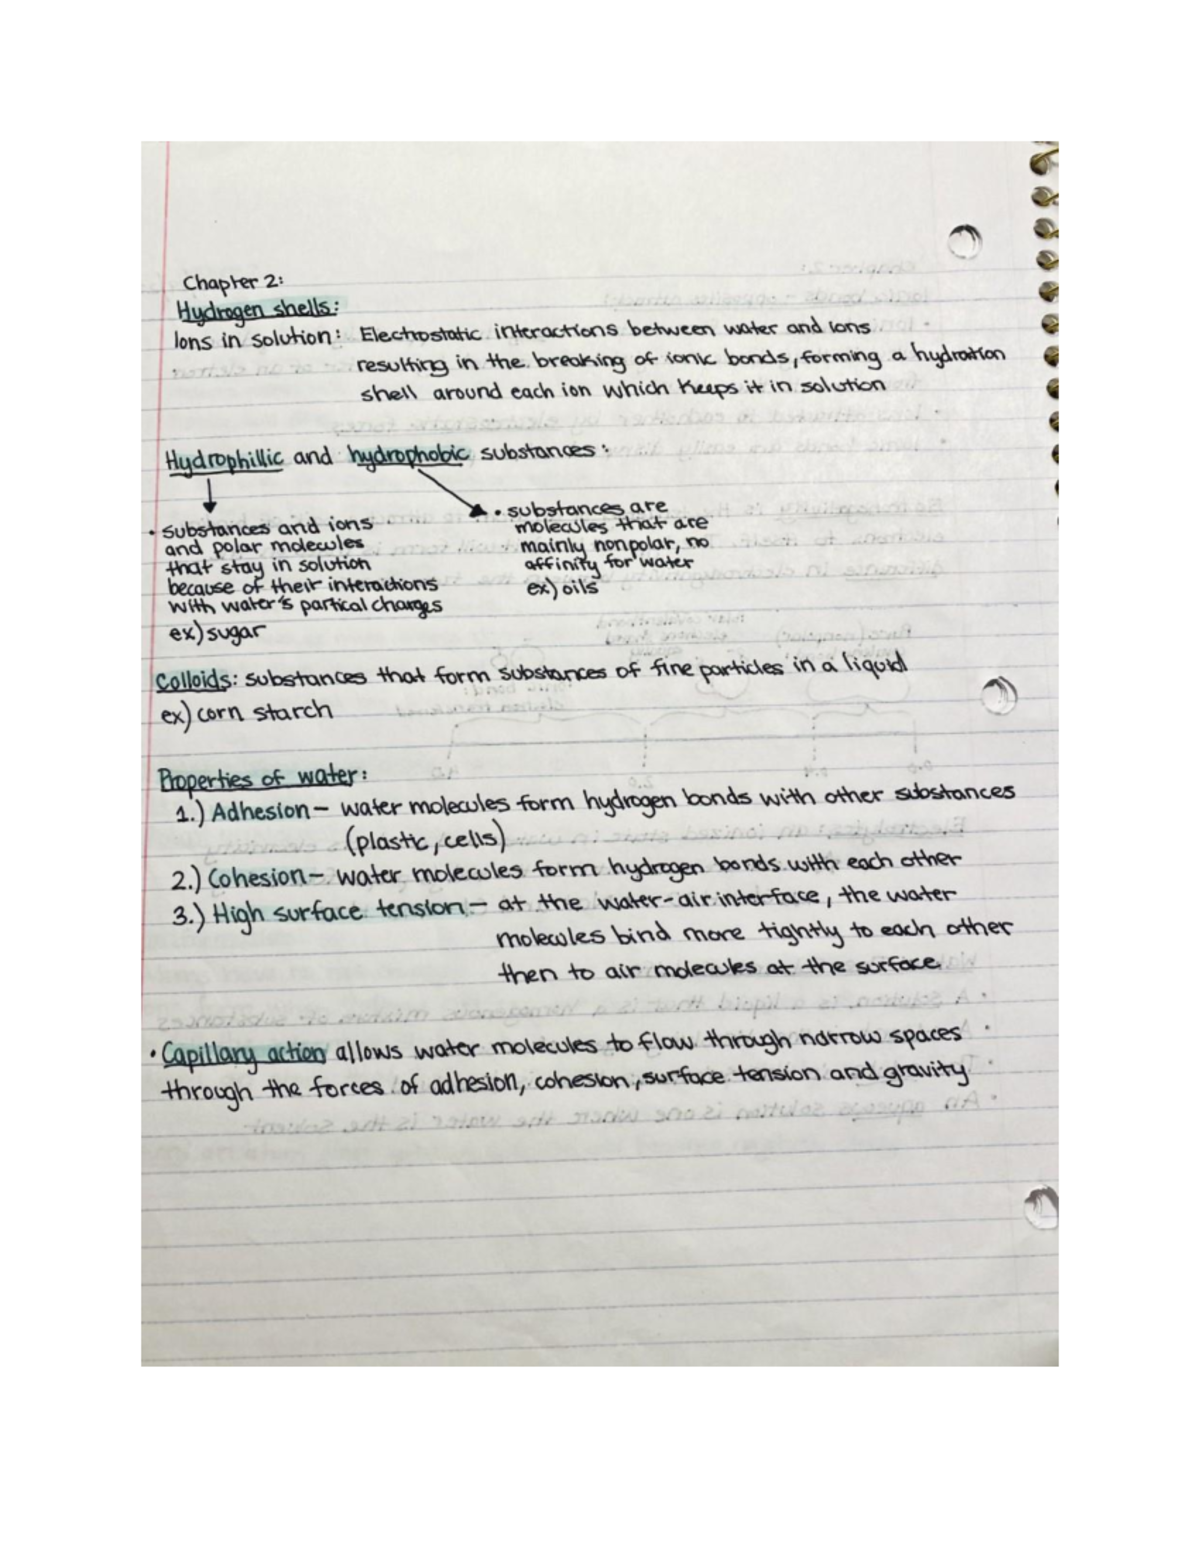 Chapter 2:
Hydrogen shells:
Ions in solution: Electrostatic interactions between water and ions
resulting in the breaking of ionic bonds, forming a hydration
shell around each ion which keeps it in solution
Hydrophillic and hydrophobic substances:
• substances and ions
and polar molecules
that stay in solution
because of their interactions
with water's partical charges
ex) sugar
• substances are
molecules that are
mainly nonpolar, no
affinity for water
ex) oils
Colloids: substances that form substances of fine particles in a liquid
ex) corn starch
Properties of water:
1.) Adhesion - water molecules form hydrogen bonds with other substances
(plastic, cells)
2.) Cohesion - water molecules form hydrogen bonds with each other
3.) High surface tension - at the water-air interface, the water
molecules bind more tightly to each other
then to air molecules at the surface
• Capillary action allows water molecules to flow through narrow spaces
through the forces of adhesion, cohesion, surface tension and gravity